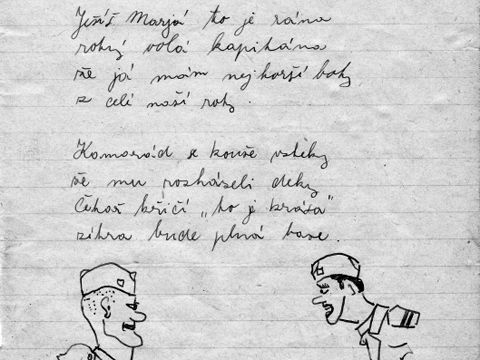 Ježíš Marjá to je rána
rotný volá kapitána
že já mám nejhorší boty
z celé naší roty.
Kamarád se kouše vzteky
že mu rozházeli deky
Čekaš křičí „to je krása"
zítra bude plná basa.